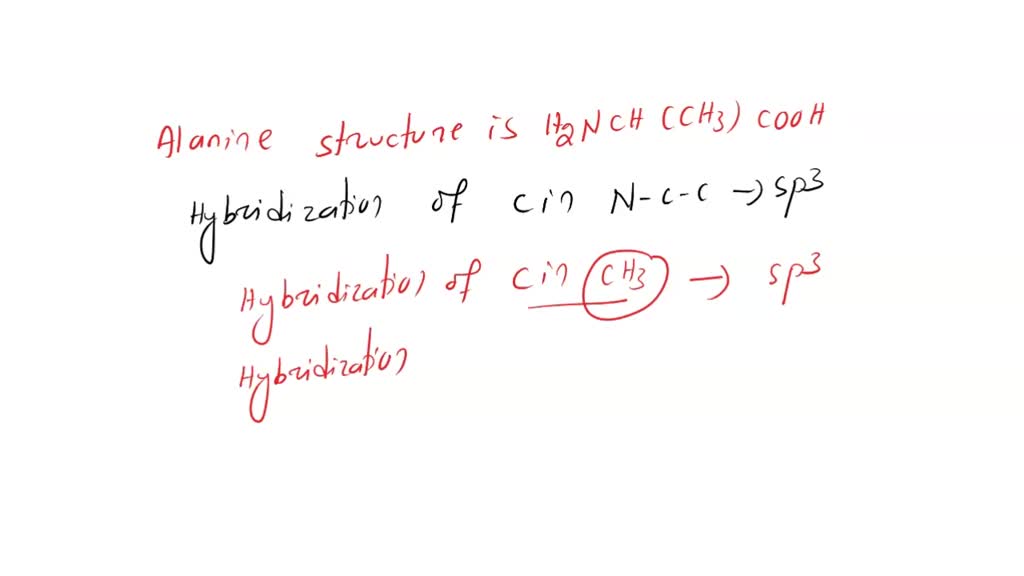 Alanine structure is H2NCH(CH3)COOH
Hybridization of C in N-C-C → sp3
Hybridization of C in CH3 → sp3
Hybridization